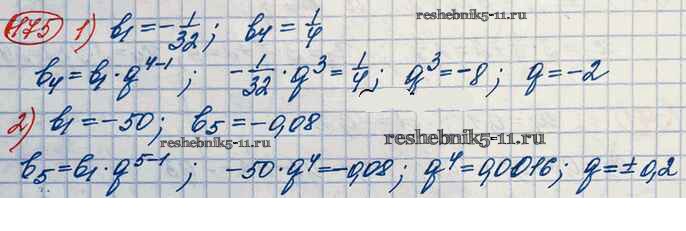 1175) 1) b₁ = -1/32; b₄ = 1/4 reshebnik5-11.ru
b₄ = b₁ · q⁴⁻¹; -1/32 · q³ = 1/4; q³ = -8; q = -2
2) b₁ = -50; b₅ = -0,08 reshebnik5-11.ru reshebnik5-11.ru
b₅ = b₁ · q⁵⁻¹; -50 · q⁴ = -0,08; q⁴ = 0,0016; q = ±0,2